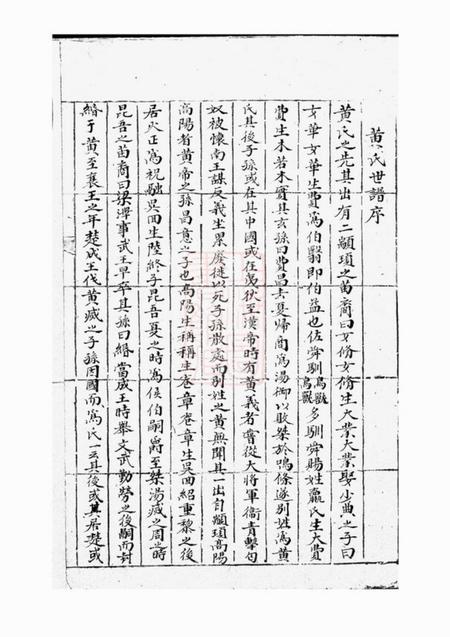 黄氏世譜序
黄氏之先其出有二顓頊之苗裔曰女脩女脩生大業大業娶少典之子曰
女華女華生費為伯翳即伯益也佐舜馴鳥獸鳥獸多馴舜賜姓嬴氏生大費
費生木若木實其玄孫曰費昌去夏歸商為湯御以敗桀於鳴條遂别姓為黄
氏其後子孫或在其中國或在夷狄至漢帝時有黄義者嘗從大將軍衞青擊匈
奴被懷南王謀反義坐累廢徙以死子孫散處而别姓之黄無聞其一出自顓頊高陽
高陽者黄帝之孫昌意之子也高陽生稱稱生卷章卷章生吴回紹重黎之後
居火正為祝融吴回生陸終子昆吾夏之時為侯伯嗣爵至桀湯滅之周之時
昆吾之苗裔曰梁澤事武王早卒其孫曰緡當成王時舉文武勤勞之後嗣而封
緡于黄至襄王之年楚成王伐黄滅之子孫因國而為氏一云其後或其居楚或